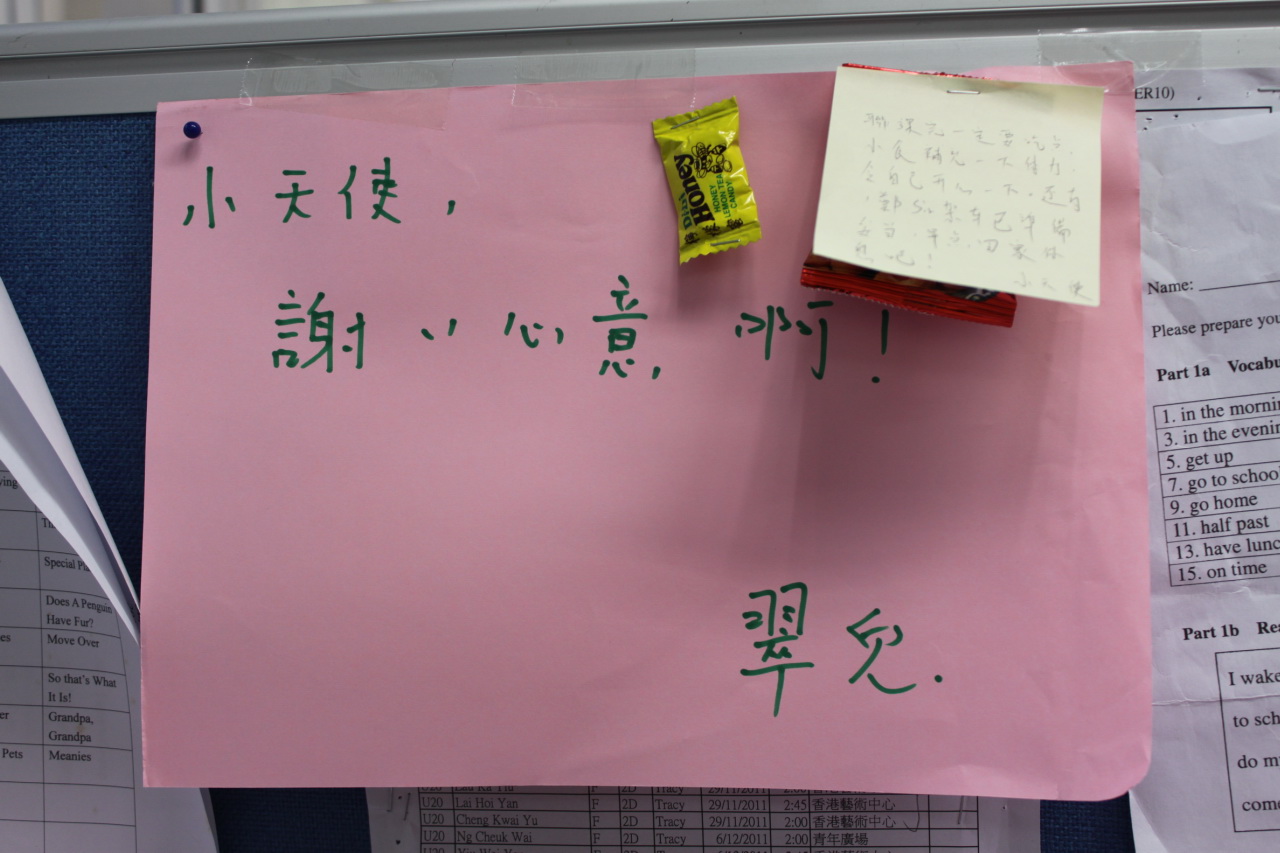 小天使,
謝 心意, 啊!
翠兒.
Honey
HONEY
LEMON TEA
CANDY
一定要吃六
小食補充一下體力,
令自己開心一下。還有
準備
回家休
息吧!
小天使
ER10)
Name:
Please prepare you
Part 1a Vocabu
1. in the mornin
3. in the evenin
5. get up
7. go to school
9. go home
11. half past
13. have lunc
15. on time
Part 1b Rea
I wake
to sch
do m
come
ving
Special
Does A Penguin
Have Fur?
Move Over
So that's What
It Is!
Grandpa,
Grandpa
Pets Meanies
U20 Lai Hoi Yan F 2D Tracy 29/11/2011 2:45 香港藝術中心
U20 Cheng Kwai Yu F 2D Tracy 29/11/2011 2:00 香港藝術中心
U20 Ng Cheuk Wai F 2D Tracy 6/12/2011 2:00 青年廣場